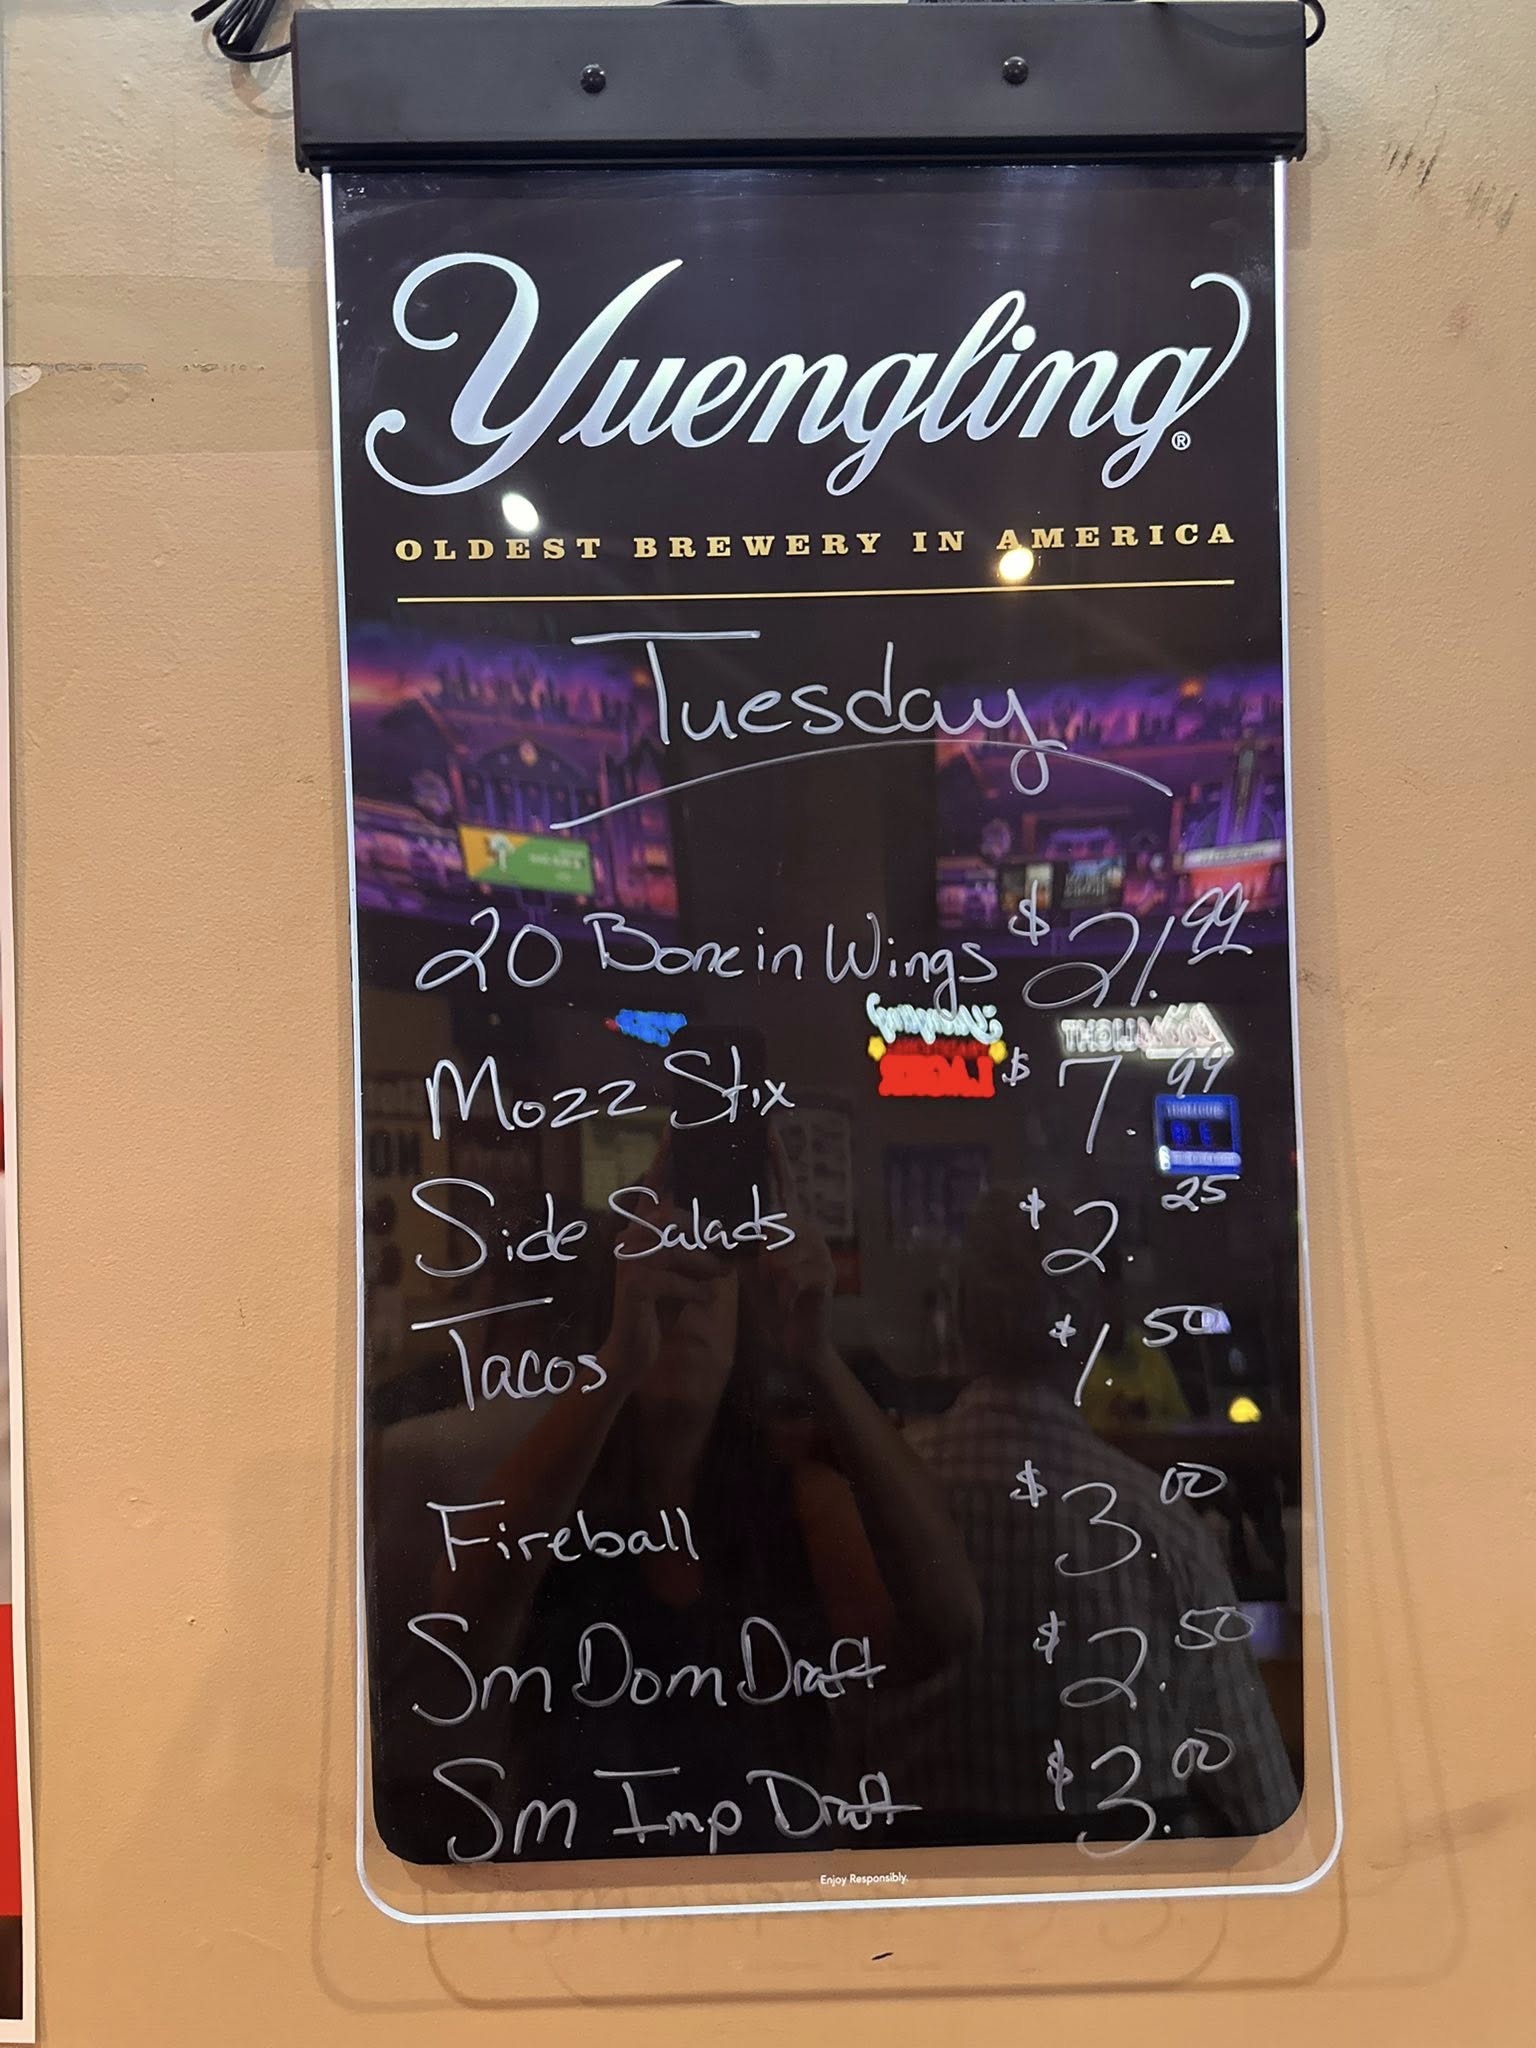 Yuengling®
OLDEST BREWERY IN AMERICA
Tuesday
20 Bone in Wings $21.99
Mozz Stix $7.99
Side Salads $2.25
Tacos $1.50
Fireball $3.00
Sm Dom Draft $2.50
Sm Imp Draft $3.00
Enjoy Responsibly.